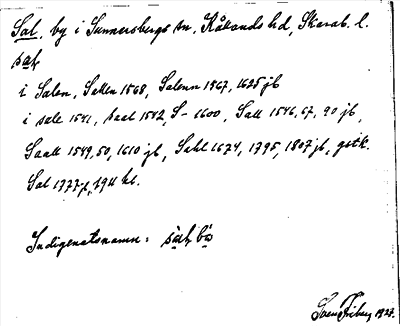 Sal, by i Sunnersbergs sn, Kållands hd, Skarab. l.
sạʈ
i Salen, Sallen 1568, Salenn 1567, 1625 jb
i sale 1541, Saal 1542, S- 1600, Sall 1546, 67, 90 jb,
Saall 1549, 50, 1610 jb, Sahl 1674, 1795, 1807 jb, gstk.
Sal 1777 jb, 1911 kl.
Indigenatsnamn:
Sven Friberg 1927.